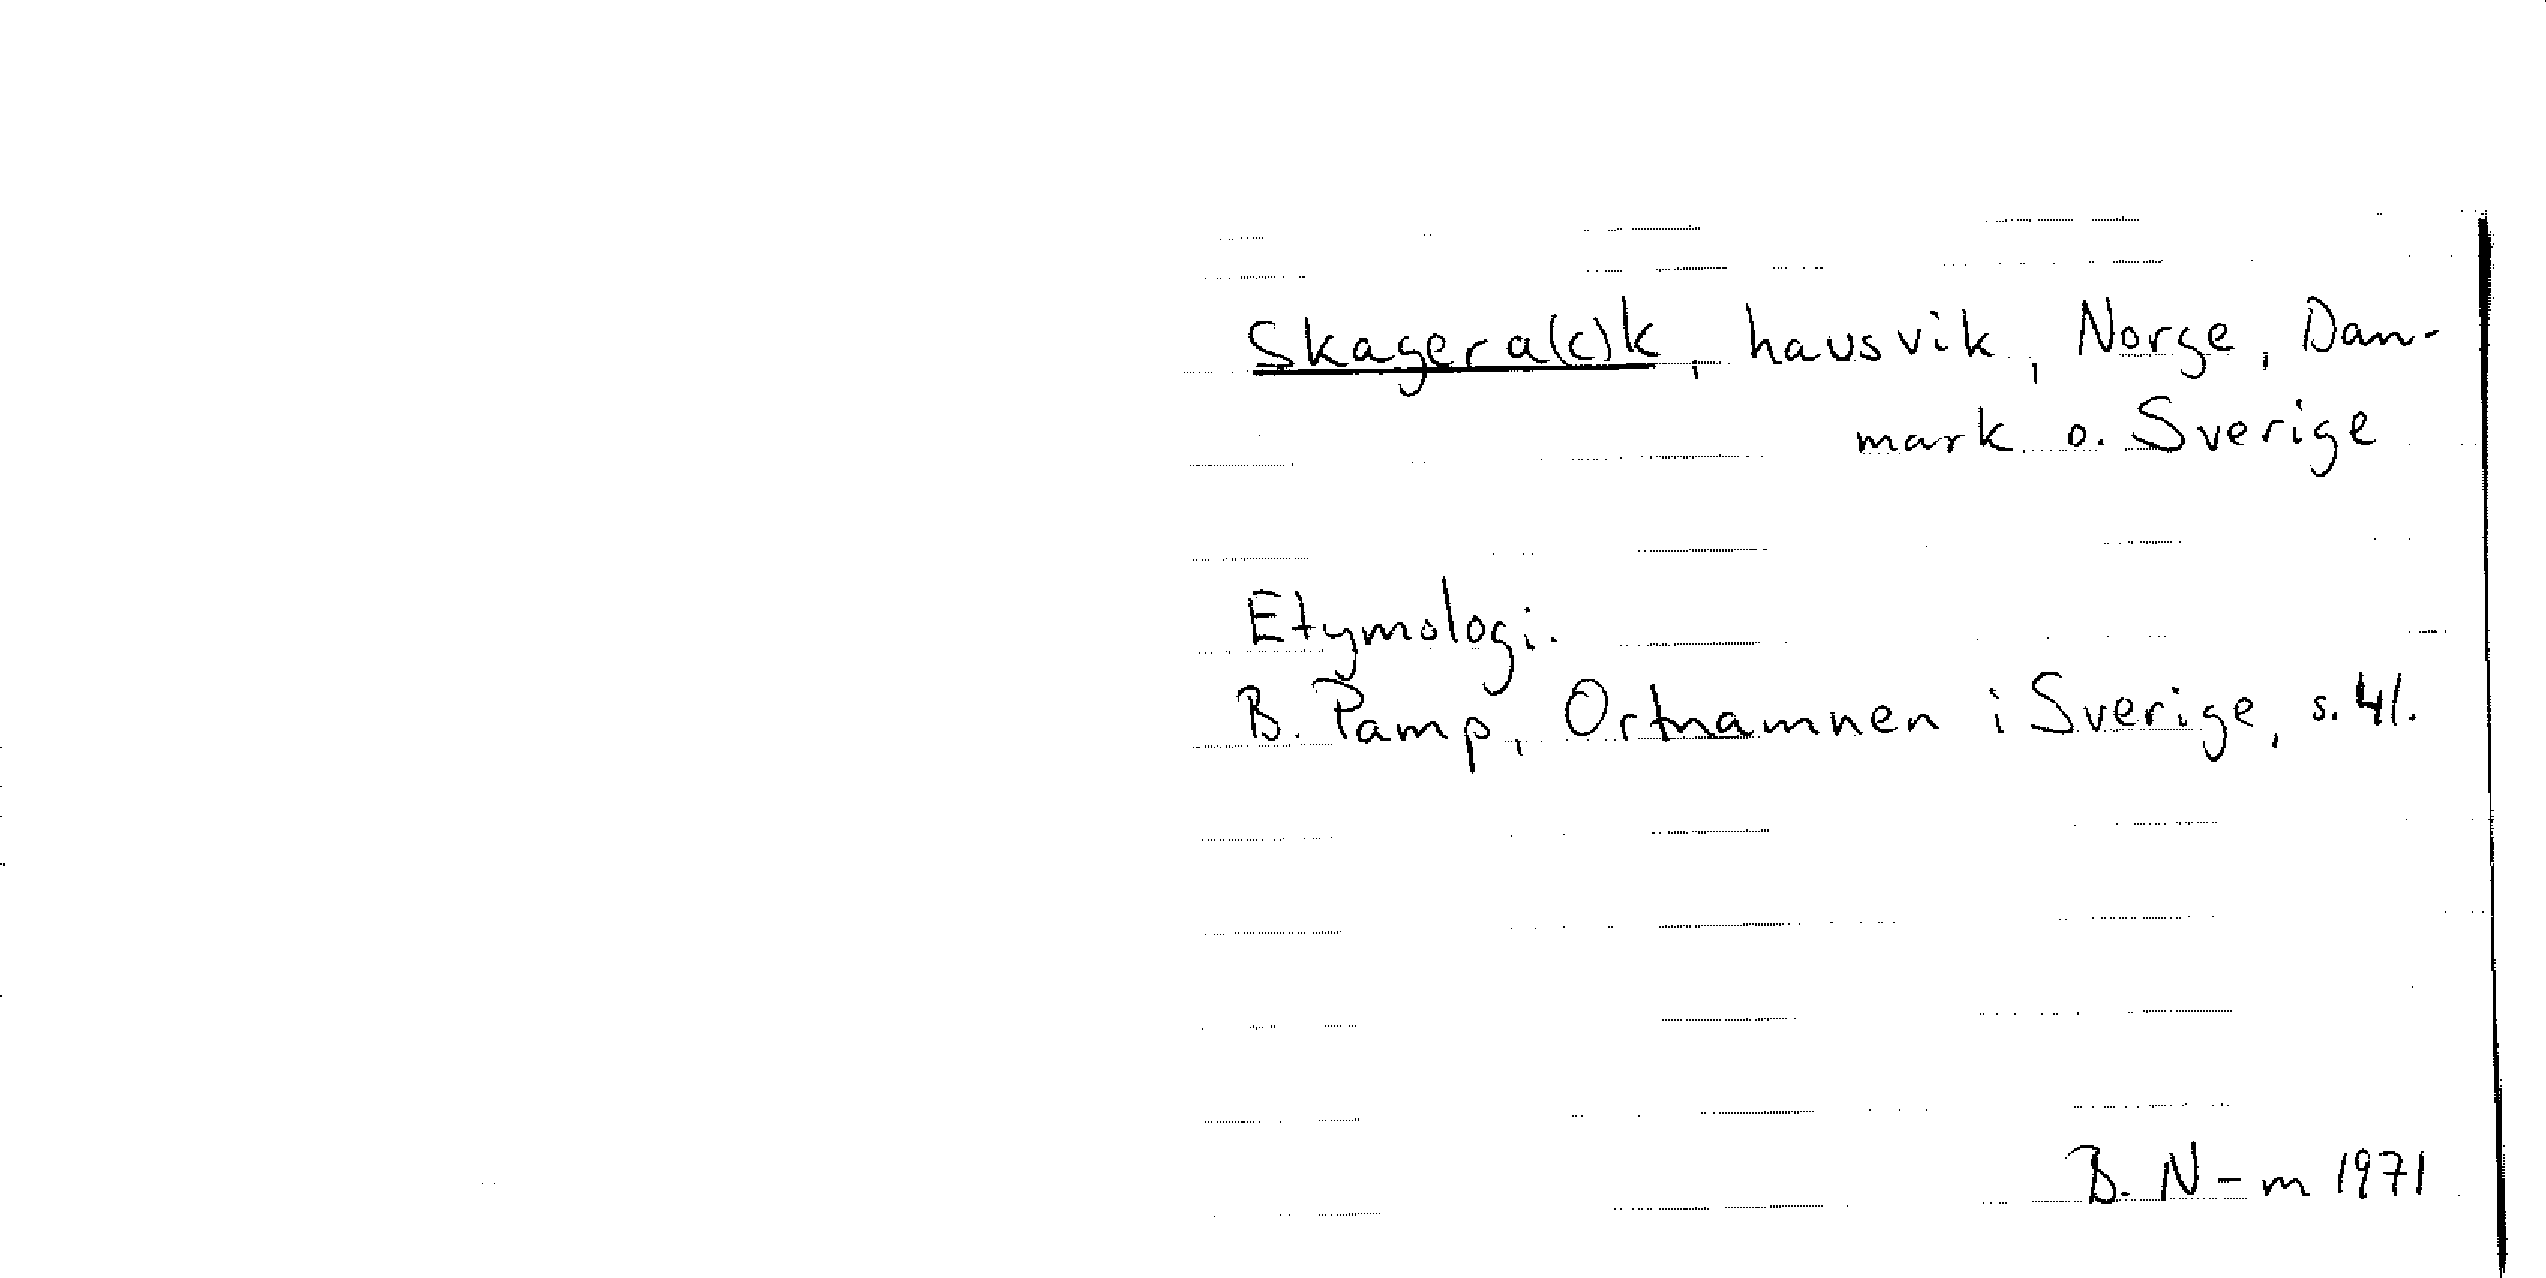 Skagera(c)k, havsvik, Norge, Dan-
mark o. Sverige
Etymologi.
B. Pamp, Ortnamnen i Sverige, s. 41.
B. N-m 1971